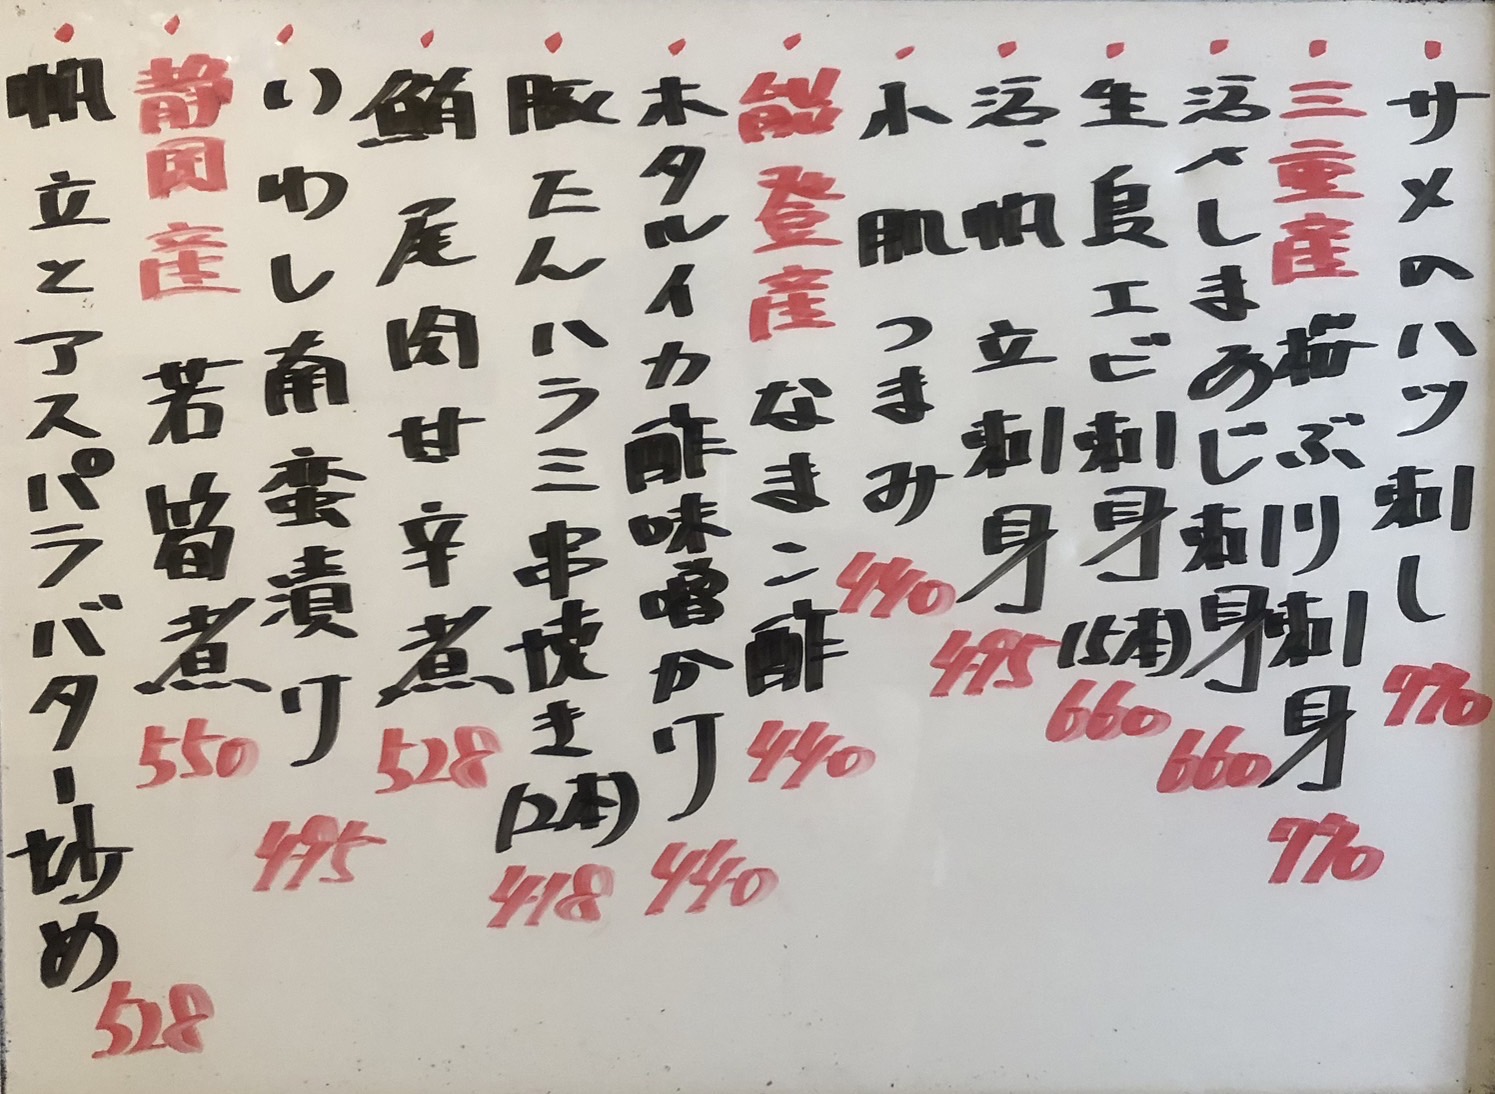 ・サメのハツ刺し 770
・三重産 桜ぶり刺身 770
・活〆しまあじ刺身 660
・生エビ刺身(15本) 660
・活帆立刺身 495
・小肌つまみ 440
・能登産 なまこ酢 440
・ホタルイカ酢味噌かけ 440
・豚たんハラミ串焼き(2本) 418
・鮪尾肉甘辛煮 528
・いわし南蛮漬け 495
・静岡産 若筍煮 550
・帆立とアスパラバター炒め 528